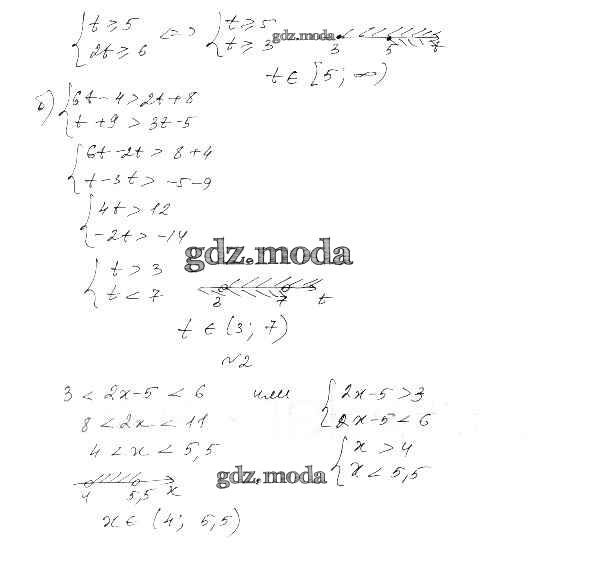 { t ≥ 5 <=> { t ≥ 5
{ 2t ≥ 6 { t ≥ 3 gdz.moda 3 5 t
t ∈ [5; ∞)
б) { 6t - 4 > 2t + 8
{ t + 9 > 3t - 5
{ 6t - 2t > 8 + 4
{ t - 3t > -5 - 9
{ 4t > 12
{ -2t > -14
gdz.moda
{ t > 3
{ t < 7 3 7 t
t ∈ (3; 7)
№2
3 < 2x - 5 < 6 или { 2x - 5 > 3
8 < 2x < 11 { 2x - 5 < 6
4 < x < 5,5 { x > 4
{ x < 5,5
4 5,5 x gdz.moda
x ∈ (4; 5,5)